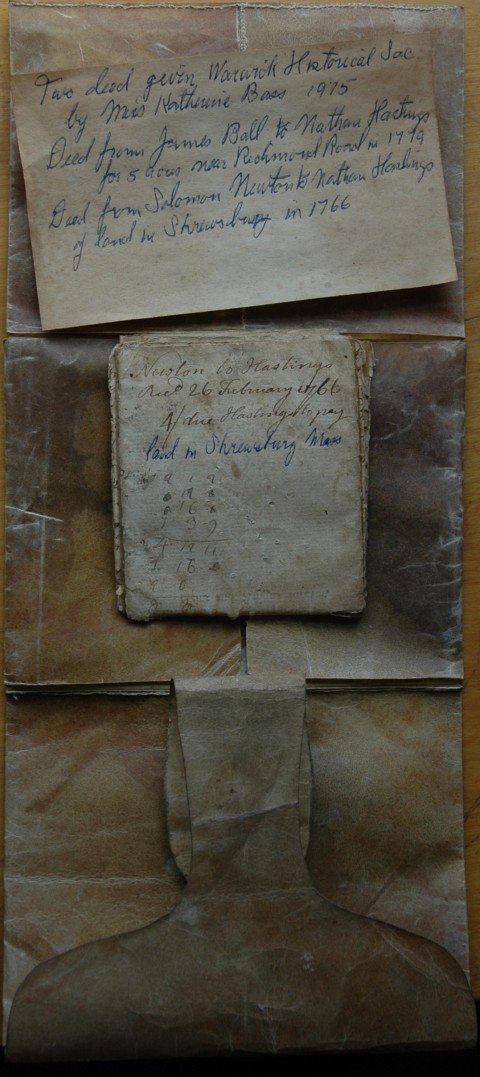 Two deed given Warwick Historical Soc
by Miss Katherine Bass 1975
Deed from James Ball to Nathan Hastings
for 5 acres near Richmond Road in 1779
Deed from Solomon Newton to Nathan Hastings
of land in Shrewsbury in 1766
Newton to Hastings
Recd 26 February 1766
4/ due Hastings to pay
land in Shrewsburg Mass
9 1 2
0 19 8
0 16 8
3 9
4 19 11
16 2